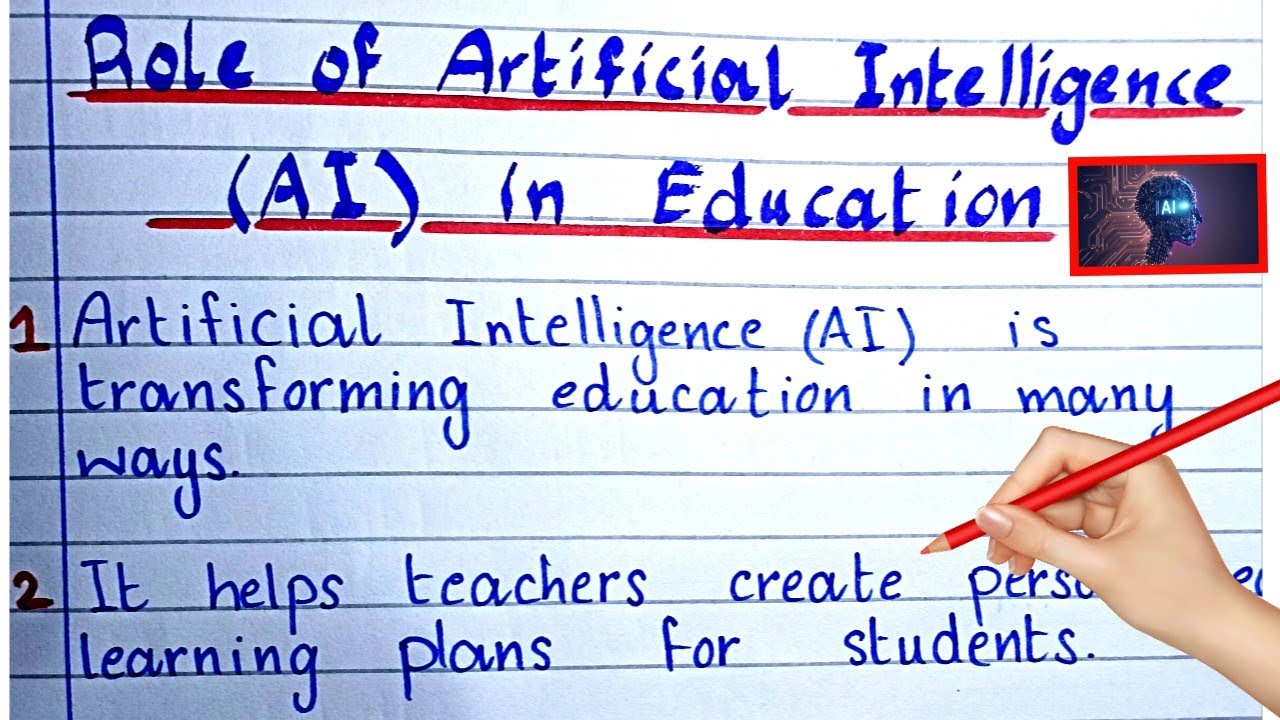 Role of Artificial Intelligence
(AI) in Education
AI
1 Artificial Intelligence (AI) is
transforming education in many
ways.
2 It helps teachers create
learning plans for students.